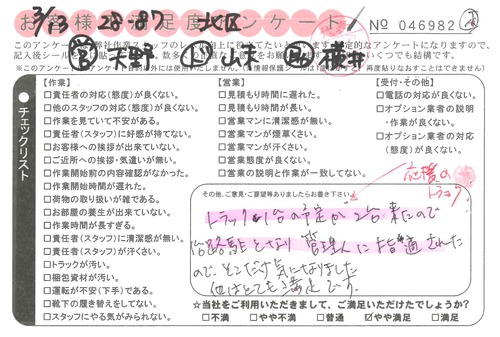 3/13 28-87 北区
お客様満足度アンケート
No 046982
このアンケートは弊社作業スタッフの
記入後シール
天野 山支 横井
【作業】
□責任者の対応(態度)が良くない。
□他のスタッフの対応(態度)が良くない。
□作業を見ていて不安がある。
□責任者(スタッフ)に好感が持てない。
□お客様への挨拶が出来ていない。
□ご近所への挨拶・気遣いが無い。
□作業開始前の内容確認がなかった。
□作業開始時間が遅れた。
□荷物の取り扱いが雑である。
□お部屋の養生が出来ていない。
□作業時間が長すぎる。
□責任者(スタッフ)に清潔感が無い。
□責任者(スタッフ)が汗くさい。
□トラックが汚い。
□梱包資材が汚い。
□運転が不安(下手)である。
□靴下の履き替えをしてない。
□スタッフにやる気がみられない。
【営業】
□見積もり時間に遅れた。
□見積もり時間が長い。
□営業マンに清潔感が無い。
□営業マンが煙草くさい。
□営業マンが汗くさい。
□営業態度が良くない。
□営業の説明と作業が一致してない。
【受付・その他】
□電話の対応が良くない。
□オプション業者の説明・作業が良くない。
□オプション業者の対応(態度)が良くない。
●チェックリスト
応援のトラック
その他、ご意見・ご要望等ありましたらお書き下さい
トラック1台の予定が2台来たので
路駐となり管理人に指適された
ので、そこだけ気になりました
他はとても満足です。
☆当社をご利用いただきまして、ご満足いただけたでしょうか?
□不満 □やや不満 □普通 ☑やや満足 □満足